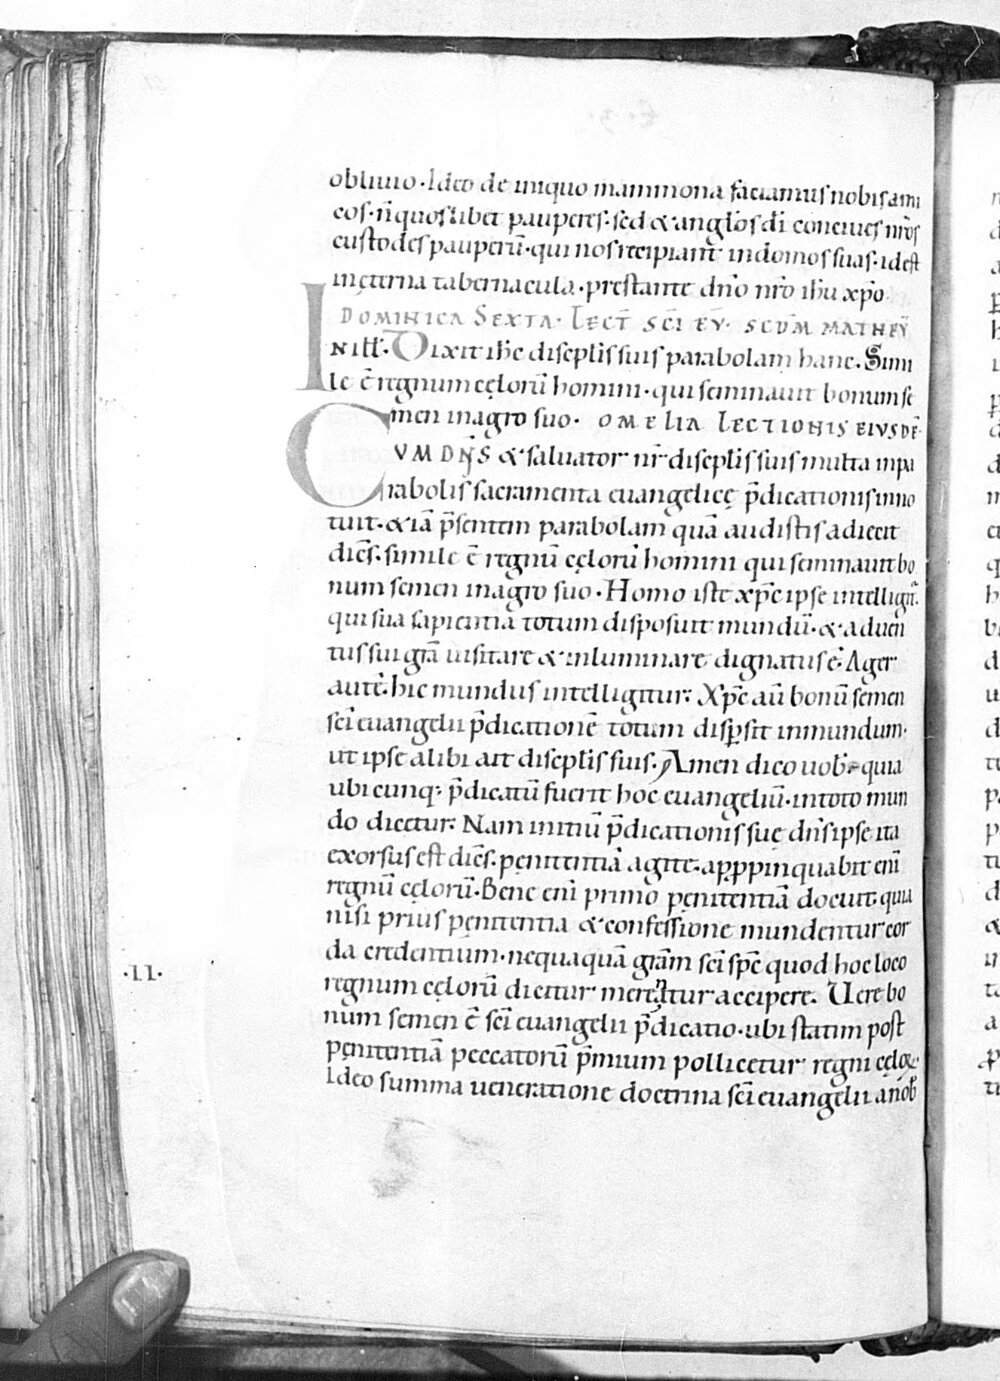 obliuio · Ideo de iniquo mammona faciamus nobis ami
cos · n̄ quoslibet pauperes · sed & anglo̅s di̅ conciues nr̄os
custodes pauperū · qui nos recipiant in domos suas · idest
in ęterna tabernacula · prestante dn̄o nr̄o ih̅u xp̄o
DOMINICA SEXTA · LECT̄ SC̄I EV̄ · SCDM MATHEV̄
IN ILL̄ · Dixit ih̅c discipl̅is suis parabolam hanc · Simi
le ē regnum cęlorū homini · qui seminauit bonum se
men in agro suo · OMELIA LECTIONIS EIVSDĒ ·
CVM DN̄S & saluator nr̄ discipl̅is suis multa in pa
rabolis sacramenta euangelicę p̄dicationis inno
tuit · & iā p̄sentem parabolam quā audistis adiecit
dicē̅s · simile ē regnū cęlorū homini qui seminauit bo
num semen in agro suo · Homo iste xp̄c ipse intelligit̄ ·
qui sua sapientia totum disposuit mundū · & aduen
tus sui gr̄a uisitare & inluminare dignatus ē · Ager
autē hic mundus intelligitur · Xp̄c aū bonū semen
sc̄i euangelii p̄dicationē totum disp̱sit in mundum ·
ut ipse alibi ait discipl̅is suis · Amen dico uob̄ · quia
ubicunq; p̄dicatū fuerit hoc euangeliū · in toto mun
do dicetur · Nam initiū p̄dicationis suę dn̄s ipse ita
exorsus est dicē̅s · penitentiā agite · app̱ropinquabit eni̅
regnū cęlorū · Bene eni̅ primo pęnitentiā docuit · quia
nisi prius pęnitentia & confessione mundentur cor
da credentium · nequaquā gr̄am sc̄i sp̄c quod hoc loco
·II·
regnum cęlorū dicitur merentur accipere · Uere bo
num semen ē sc̄i euangelii p̄dicatio · ubi statim post
pęnitentiā peccatorū p̄mium pollicetur regni cęloꝝ ·
Ideo summa ueneratione doctrina sc̄i euangelii a nob̄